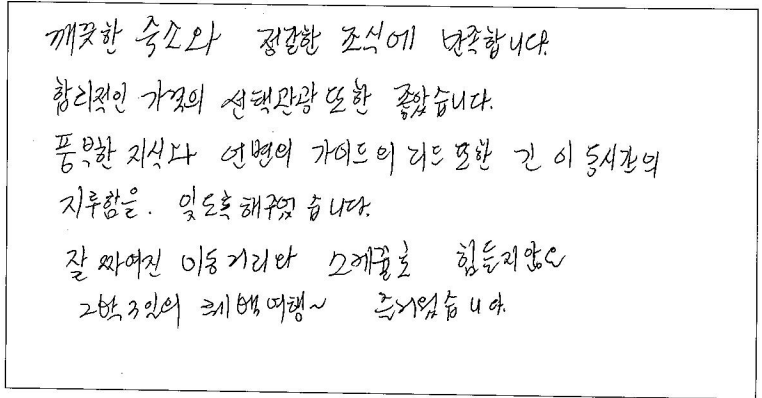 깨끗한 숙소와 정갈한 조식에 만족합니다.
합리적인 가격의 선택관광 또한 좋았습니다.
풍부한 지식과 언변의 가이드의 리드 또한 긴 이동시간의
지루함을. 잊도록해주었습니다.
잘 짜여진 이동거리와 스케줄로 힘들지않은
2박3일의 퀘백여행~ 즐거웠습니다.